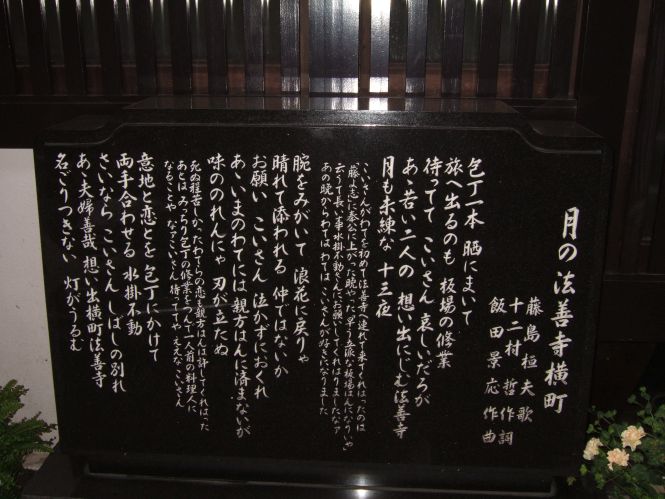 月の法善寺横町
藤島桓夫 歌
十二村 哲 作詞
飯田景応 作曲
包丁一本 晒にまいて
旅へ出るのも 板場の修業
待ってて こいさん 哀しいだろが
あゝ若い二人の 想い出にしむ法善寺
月も未練な 十三夜
こいさんがわてを初めて法善寺へ連れて来てくれはったのは
「藤よ志」に奉公に上った晩やった「早う立派な板場はんになりいや」
云うて長い事水掛不動さんにお願いしてくれはりましたなァ
あの晩からわては わては こいさんが好きになりました
腕をみがいて 浪花に戻りゃ
晴れて添われる 仲ではないか
お願い こいさん 泣かずにおくれ
あゝいまのわてには 親方はんに済まないが
味ののれんにゃ 刃が立たぬ
死ぬ程苦しかったわてらの恋も親方はんは許してくれはった
あとはみっちり包丁の修業をつんで一人前の料理人に
なることや なァこいさん 待っててや ええなこいさん
意地と恋とを 包丁にかけて
両手合わせる 水掛不動
さいなら こいさん しばしの別れ
あゝ夫婦善哉 想い出横町法善寺
名ごりつきない 灯がうるむ